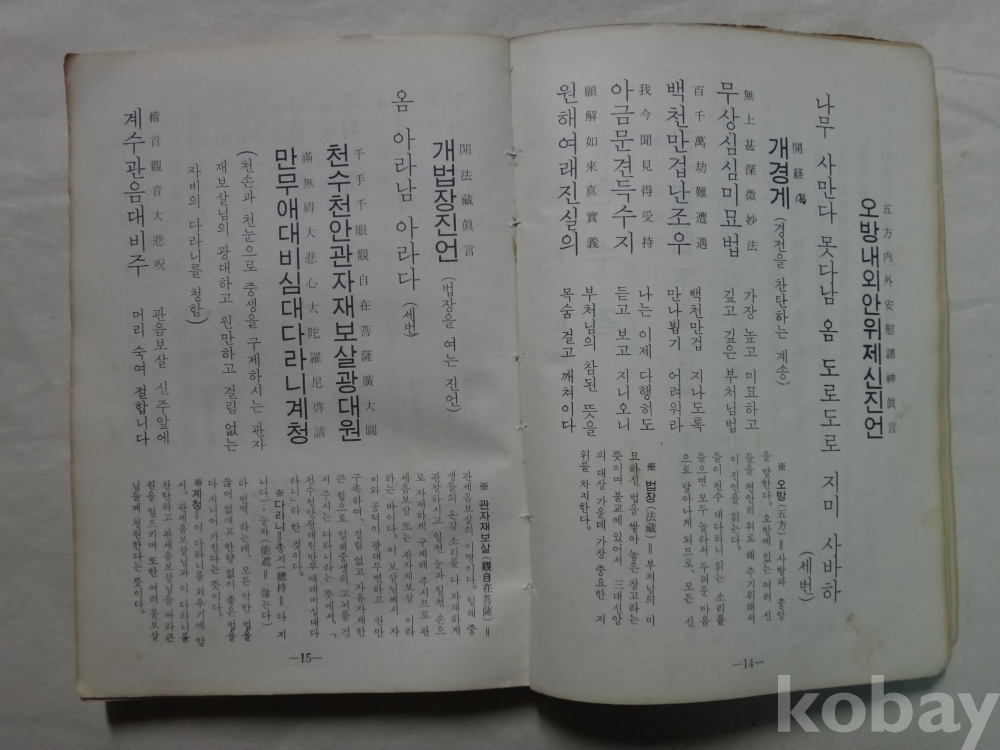 五方內外安慰諸神眞言
오방내외안위제신진언
나무 사만다 못다남 옴 도로도로 지미 사바하
(세번)
開経偈
개경게 (경전을 찬탄하는 게송)
無上甚深微妙法
무상심심미묘법 가장 높고 미묘하고
깊고 깊은 부처님법
百千萬劫難遭遇
백천만겁난조우 백천만겁 지나도록
만나뵙기 어려워라
我今聞見得受持
아금문견득수지 나는 이제 다행히도
듣고 보고 지니오니
願解如來真實義
원해여래진실의 부처님의 참된 뜻을
목숨 걸고 깨쳐이다
※ 오방(五方)＝사방과 중앙
을 말한다. 오방에 있는 여러 신
들을 편안히 위로해 주기위해서
이 진언을 읽는다.
들이 천수 대다라니 읽는 소리를
들으면 모두 놀라서 두려운 마음
으로 달아나게 되므로, 모든 신
※ 법장(法藏)＝부처님의 미
묘하신 법을 쌓아 놓은 창고라는
뜻이며 불교에 있어서 三대신앙
의 대상 가운데 가장 중요한 지
위를 차지한다.
—14—
開法藏眞言
개법장진언 (법장을 여는 진언)
옴 아라남 아라다 (세번)
千手千眼觀自在菩薩廣大圓
천수천안관자재보살광대원
滿無㝵大悲心大陀羅尼啓請
만무애대비심대다라니계청
(천손과 천눈으로 중생을 구제하시는 관자
재보살님의 광대하고 원만하고 걸림 없는
자비의 다라니를 청함)
稽首觀音大悲呪
계수관음대비주 관음보살 신주앞에
머리 숙여 절합니다
※ 관자재보살(觀自在菩薩)＝
관세음보살의 이명이다. 일체 중
생들의 온갖 소리를 다 자재하게
관찰하시고 일천 눈과 일천 손으
로 자재하게 구제해 주시므로 관
세음보살 또는 관자재보살 이라
하는 바다. 이 보살님께서 자
비와 공덕이 광대무변하고 원만
구족하여, 걸림 없고 자유자재한
큰 힘으로 일체중생의 고뇌를 건
저 주시는 다라니라는 뜻에서, 「
천수천안광대원만무애대비심대다
라니」라 한 것이다.
※다라니＝총지(總持＝다 지
니다)·능차(能遮＝끊는다)
라 번역 하는데, 모든 악한 법을
끊어 없애고 한량 없이 좋은 법을
다 지니어 가진다는 뜻이다.
※계청＝이 다라니를 외우기에 앞
서, 관세음보살님과 이 다라니를
찬탄하고 관세음보살님을 따라 큰
원을 일으키며 또한 여러 불보살
님들께 청원한다는 뜻이다.
—15—
kobay